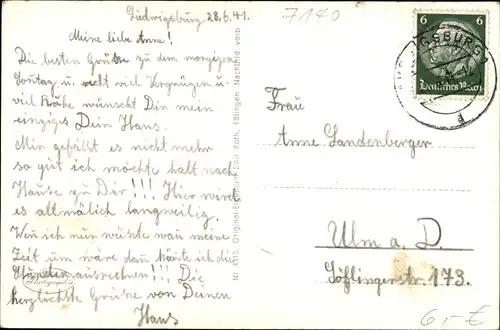 Ludwigsburg 28.6.41.
7140
Meine liebe Anne!
Die besten Grüße zu dem morgigen
Sonntag u. recht viel Vergnügen u.
viel Ruhe wünscht Dir mein
einziges Dein Hans.
Mir gefällt es nicht mehr
so gut ich möchte halt nach
Hause zu Dir!!! Hier wird
es allmälich langweilig.
Wen ich nur wüste wan meine
Zeit um wäre dan könte ich die
Stunden ausrechnen!!! Die
herzlichste Grüße von Deinen
Hans
Photographie
Nachbild. verb.
6 6
Deutsches Reich
Frau
Anne Sandenberger
Ulm a. D.
Söflingerstr. 173.
6,- €